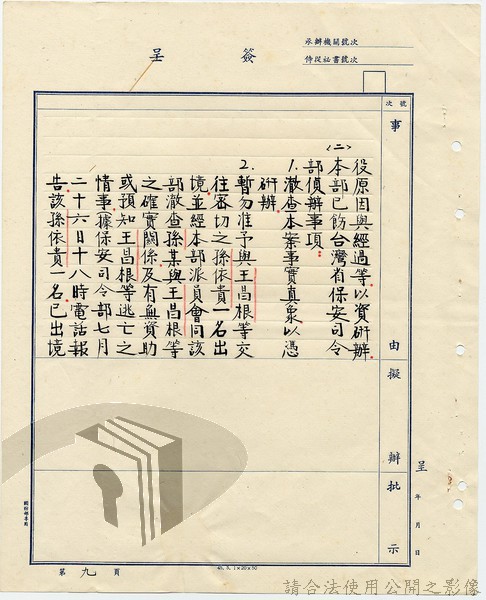 簽呈
承辦機關號次
侍從祕書號次
號次
事由擬辦批示
役原因與經過等以資研辦
(二)本部已飭台灣省保安司令
部偵辦事項:
1.澈查本案事實真象以憑
研辦
2.暫勿准予與王昌根等交
往密切之孫依貴一名出
境並經本部派員會同該
部澈查孫某與王昌根等
之確實關係及有無資助
或預知王昌根等逃亡之
情事據保安司令部七月
二十六日十八時電話報
告該孫依貴一名已出境
呈 年 月 日
第九頁
請合法使用公開之影像